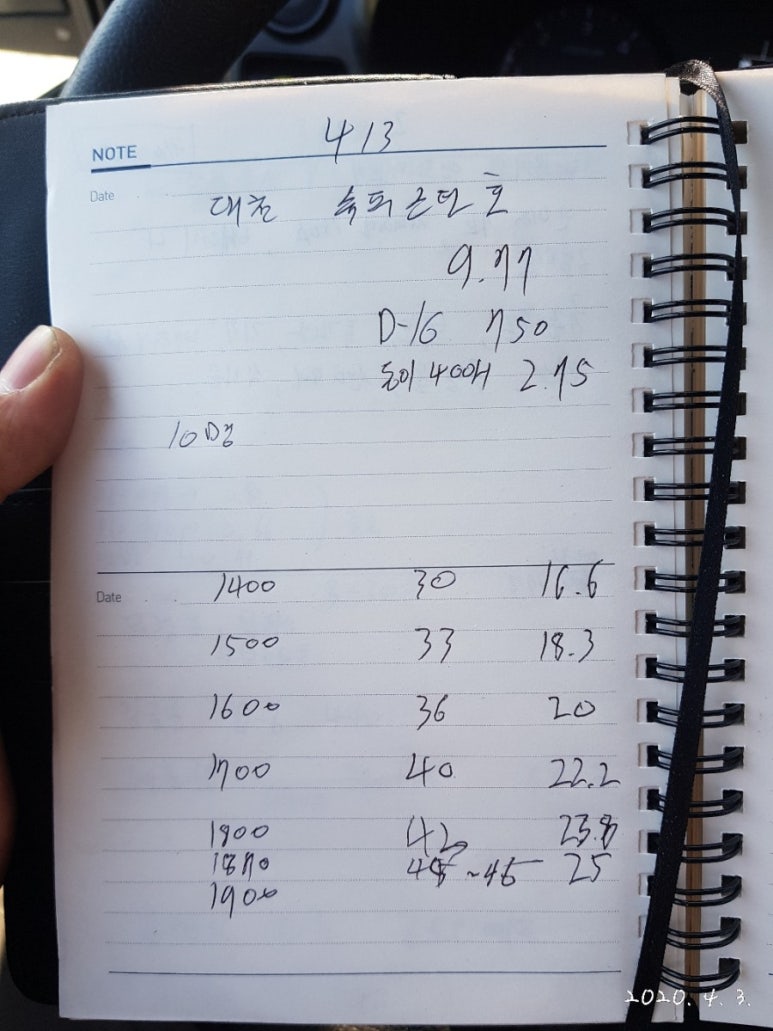 NOTE 4/3
Date 대천
9.77
D-16 750
동이 400H 2.75
10명
Date 1400 30 16.6
1500 33 18.3
1600 36 20
1700 40 22.2
1800 42 23.8
1870 ~45 25
1900
2020. 4. 3.